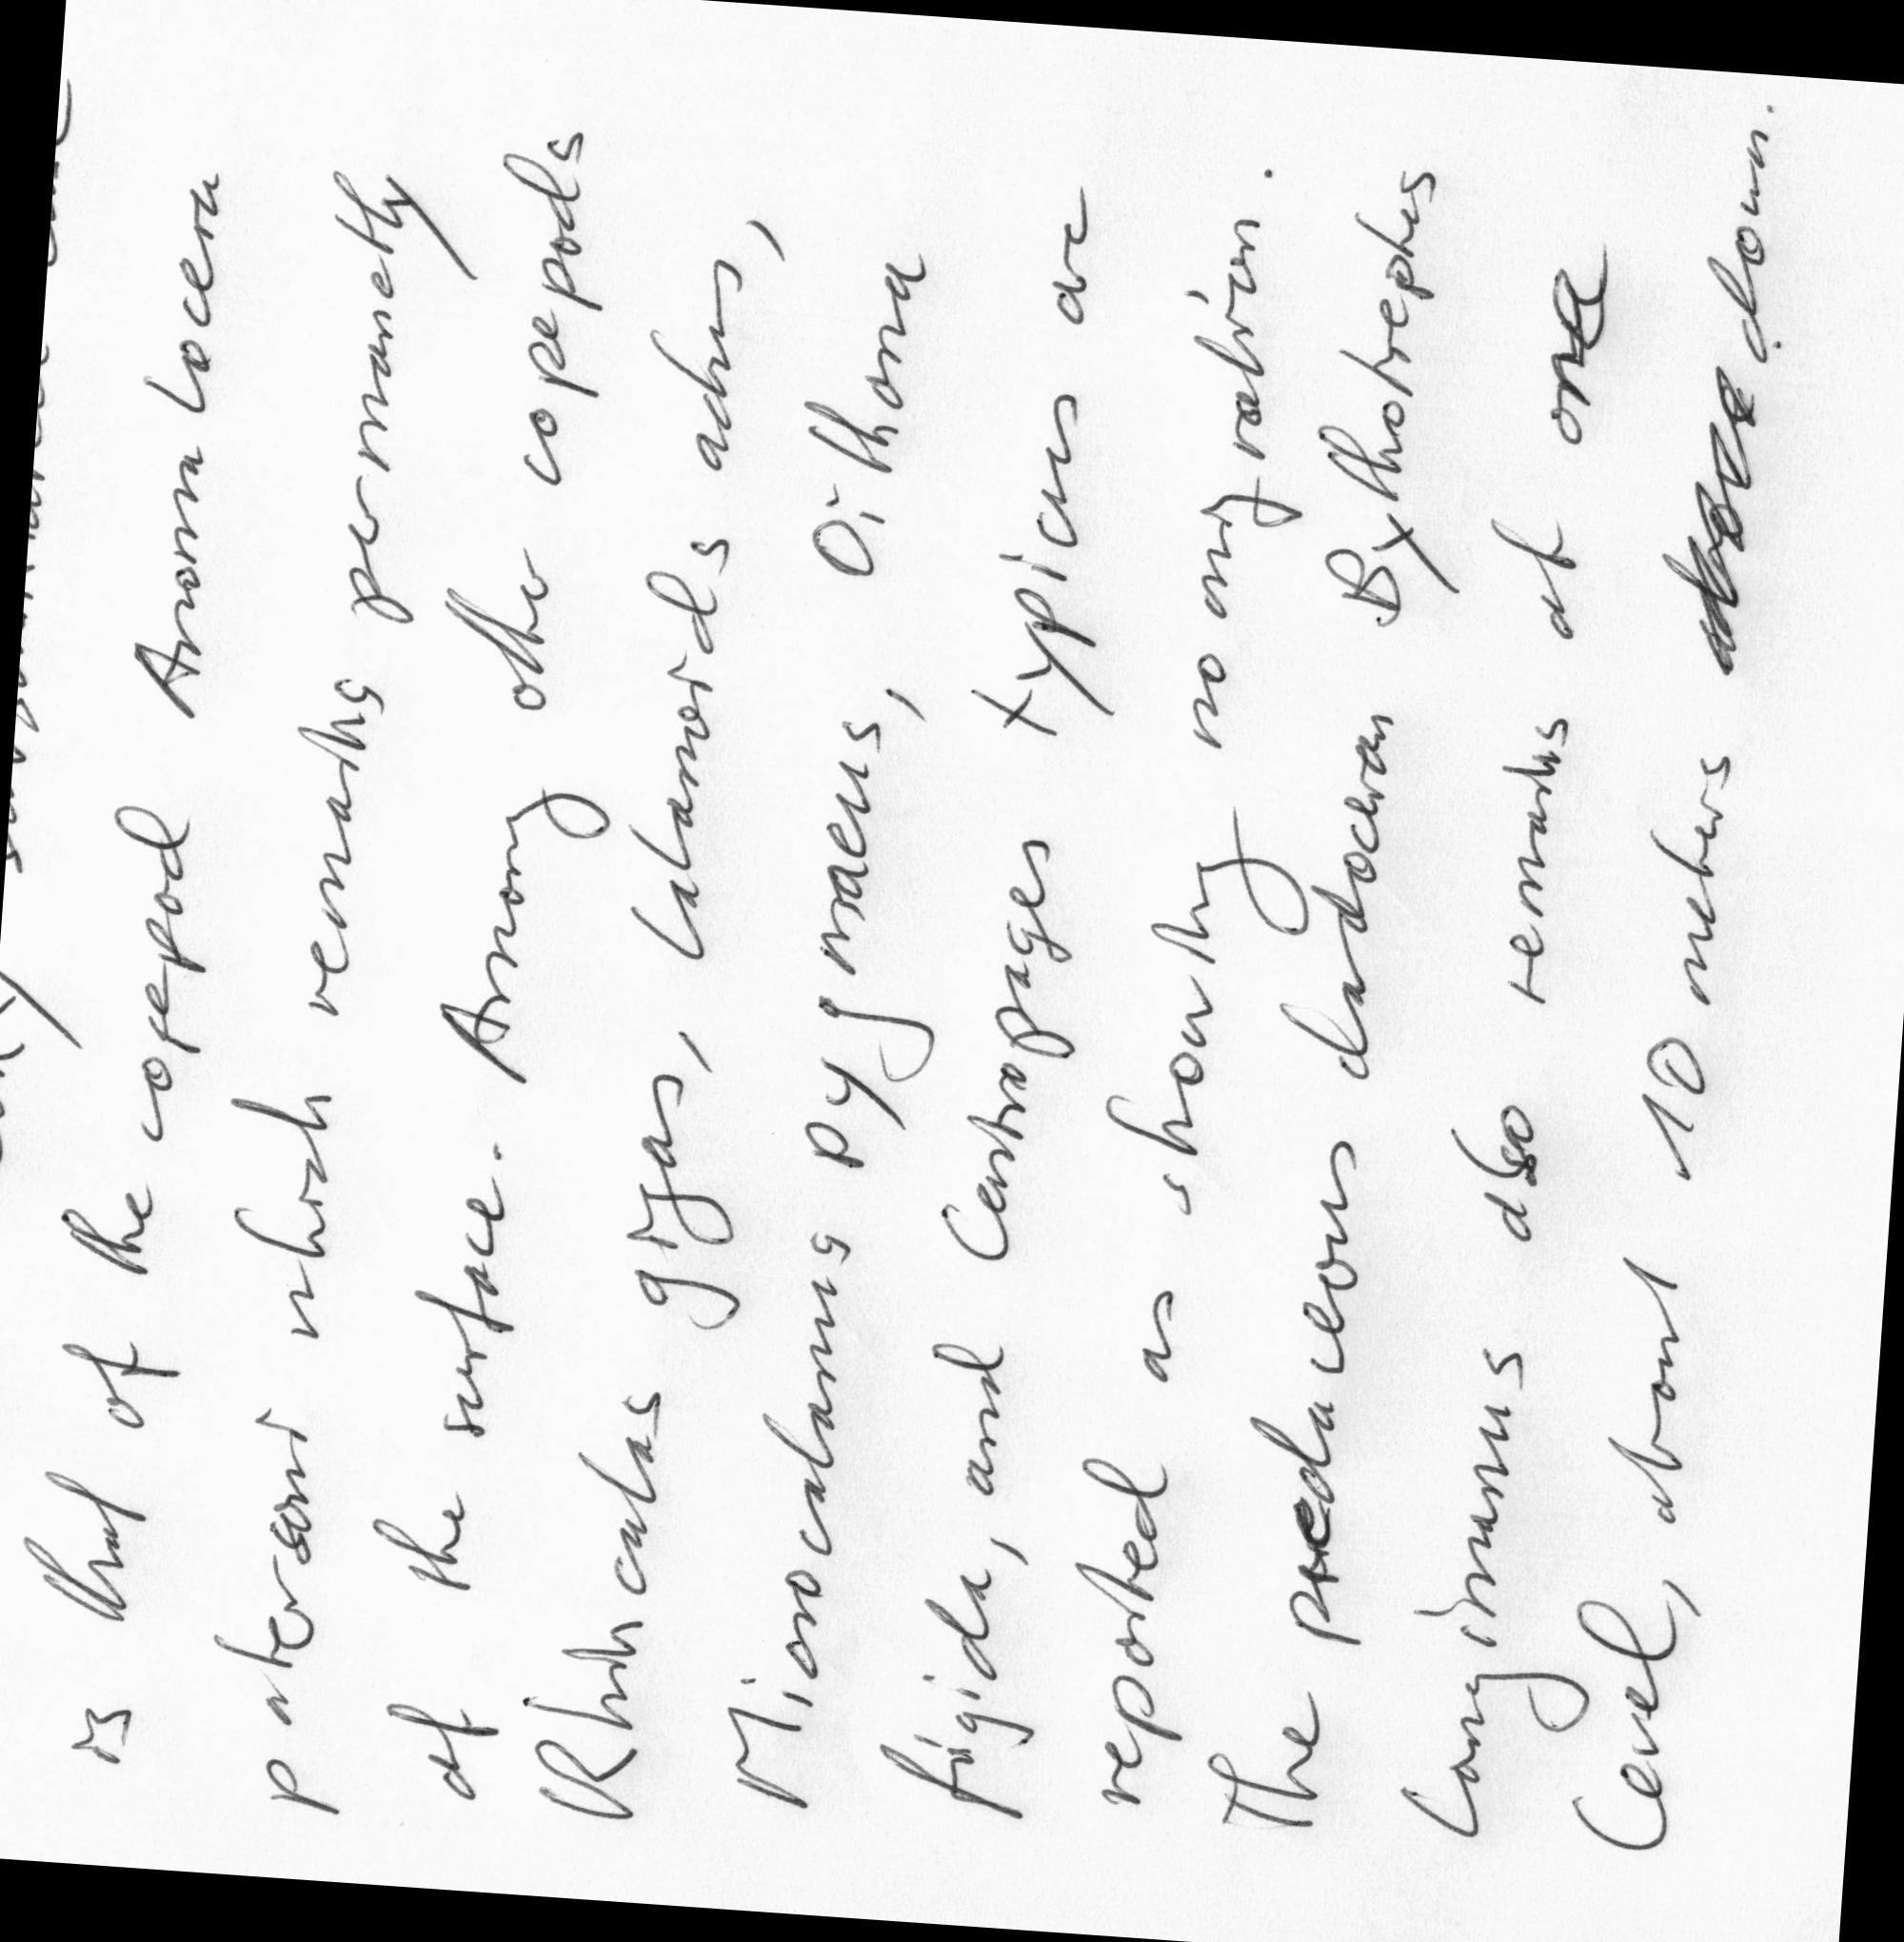 is that of the copepod Anomalocera
patersoni which remains permanently
of the surface. Among other copepods
Rhincalas gigas, Calanoids adus,
Miocalanus pygmaeus, Oithona
frigida, and Centropages typicus are
reported as showing no migration.
The predaceous cladoceran Bythotrephes
longimanus also remains at one
level, about 10 meters down.